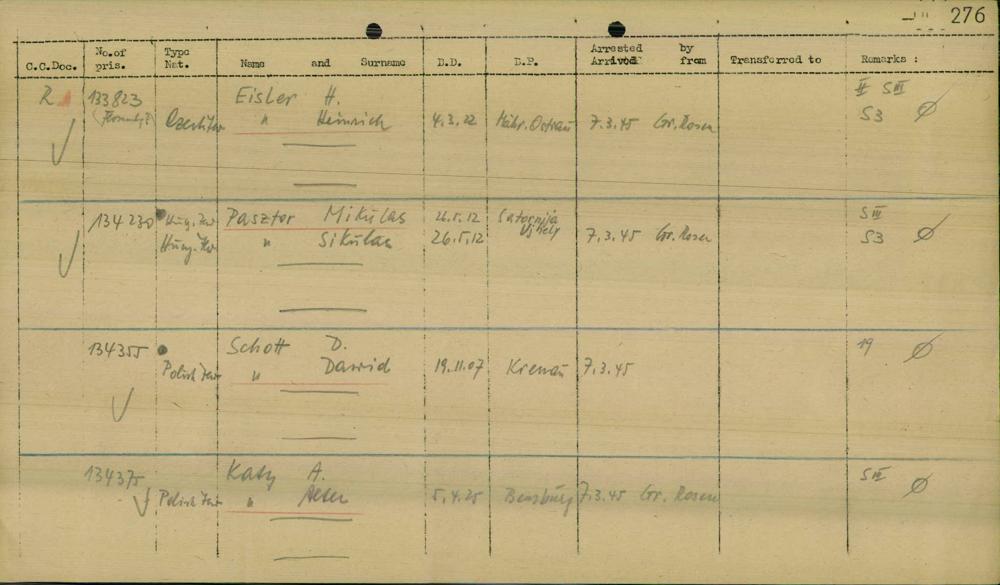 276
C.C.Doc. No.of pris. Type Nat. Name and Surname D.D. D.P. Arrested by Arrived from Transferred to Remarks :
R 133823 Eisler H. II S III
" Heinrich 4.3.22 Mähr. Ostrau 7.3.45 Gr. Rosen S3
134230 Hung. Jew Pasztor Mikulas 26.5.12 Satornija S III
Hung. Jew " Sikulas 26.5.12 Ujhely 7.3.45 Gr. Rosen S3
134355 Schott D. 19
Polish Jew " Dawid 19.11.07 Krenau 7.3.45
134375 Katz A. S III
Polish Jew " 5.4.25 Bensburg 7.3.45 Gr. Rosen